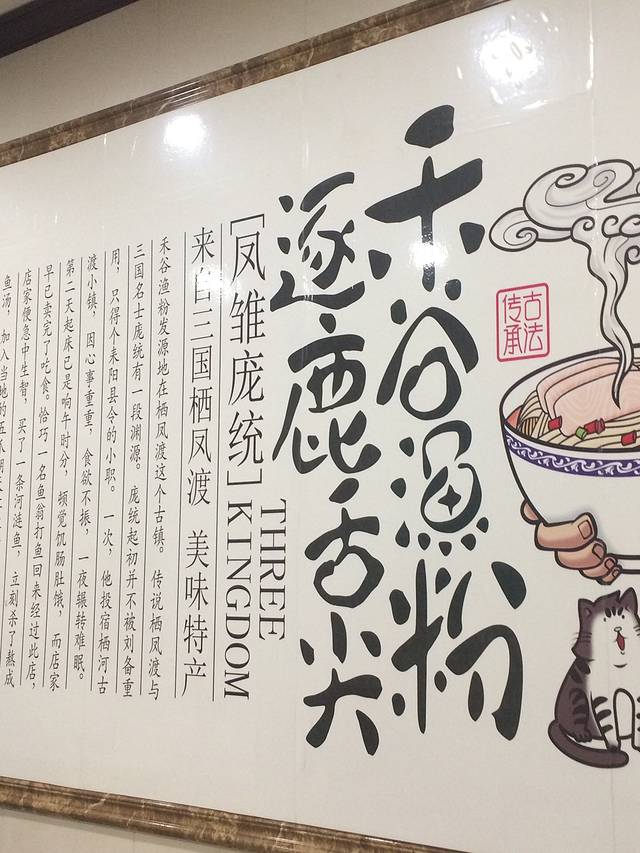 古法
传承
禾谷渔粉
逐鹿舌尖
[凤雏庞统]
THREE
KINGDOM
来自三国栖凤渡 美味特产
禾谷渔粉发源地在栖凤渡这个古镇。传说栖凤渡与
三国名士庞统有一段渊源。庞统起初并不被刘备重
用，只得个耒阳县令的小职。一次，他投宿栖河古
渡小镇，因心事重重，食欲不振，一夜辗转难眠。
第二天起床已是响午时分，顿觉饥肠肚饿，而店家
早已卖完了吃食。恰巧一名鱼翁打鱼回来经过此店，
店家便急中生智，买了一条河涟鱼，立刻杀了熬成
鱼汤，加入当地的五爪朝天